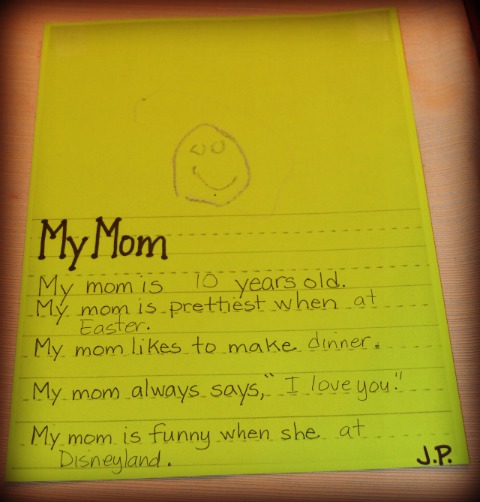 My Mom
My mom is 10 years old.
My mom is prettiest when at
Easter.
My mom likes to make dinner.
My mom always says, "I love you."
My mom is funny when she at
Disneyland.
J.P.